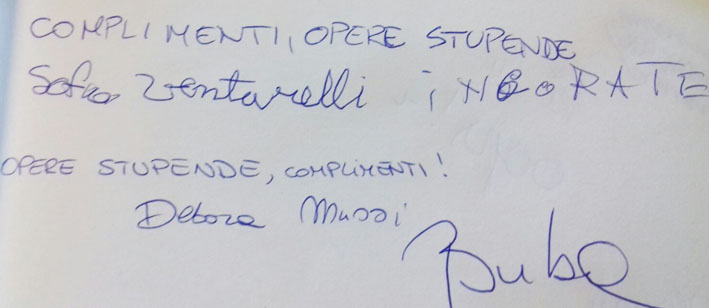 COMPLIMENTI, OPERE STUPENDE
Sofia Venturelli
OPERE STUPENDE, COMPLIMENTI!
Debora Mussi